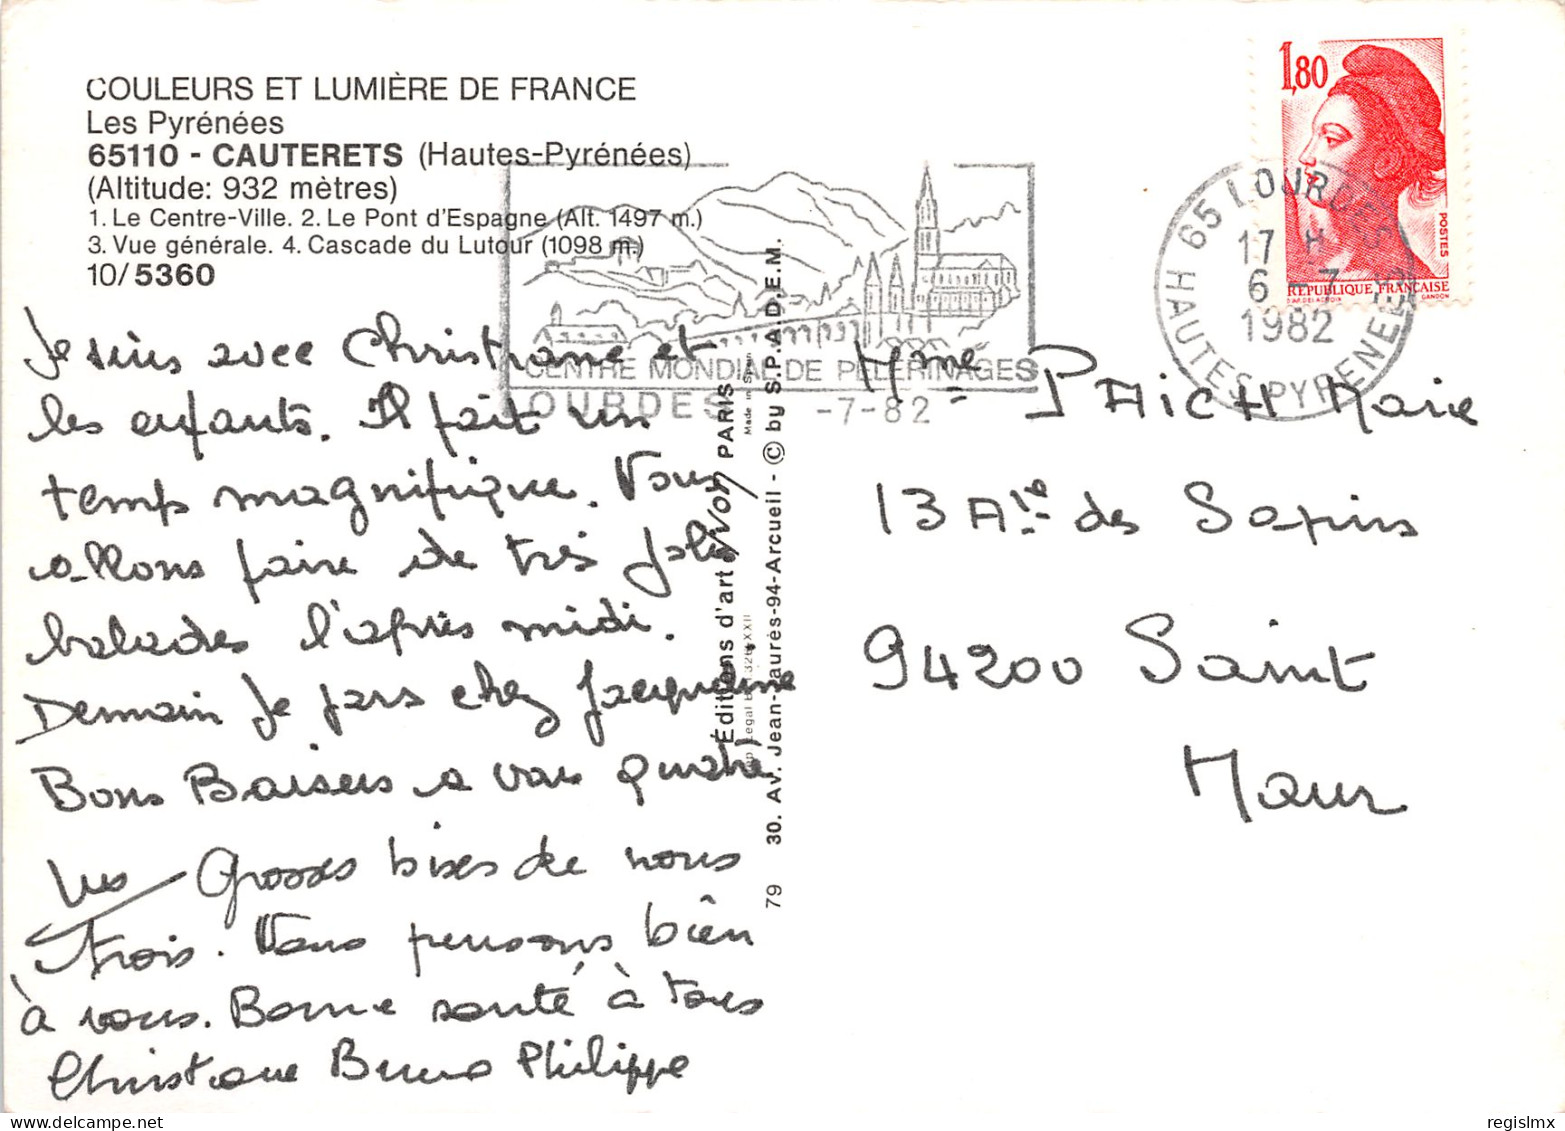 COULEURS ET LUMIÈRE DE FRANCE
Les Pyrénées
65110 - CAUTERETS (Hautes-Pyrénées)
(Altitude: 932 mètres)
1. Le Centre-Ville. 2. Le Pont d'Espagne (Alt. 1497 m.)
3. Vue générale. 4. Cascade du Lutour (1098 m.)
10/5360
Je suis avec Christiane et
les enfants. Il fait un
temps magnifique. Nous
allons faire de très jolies
balades l'après midi.
Demain je pars chez Jacqueline
Bons Baisers a vous quatre
Grosses bises de nous
trois. Nous pensons bien
à vous. Bonne santé à tous
Christiane Bruno Philippe
CENTRE MONDIAL DE PELERINAGES
LOURDES -7-82
Éditions d'art YVON PARIS
Made in Spain
30. Av. Jean-Jaurès-94-Arcueil - © by S.P.A.D.E.M.
79
1,80
POSTES
RÉPUBLIQUE FRANÇAISE
D'AP. DELACROIX GANDON
65 LOURDES
17 H
6 -7
1982
HAUTES-PYRENEES
Mme PAICH Marie
13 Alée des Sapins
94200 Saint
Maur
regislmx